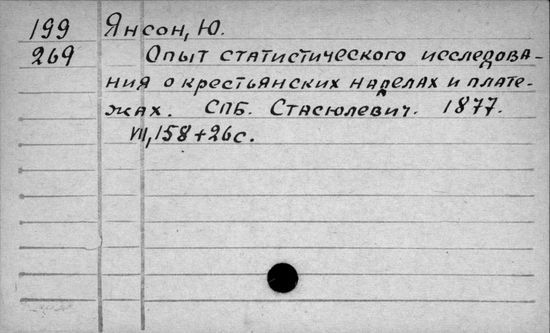 199 Янсон, Ю.
269 Опыт статистического исследова-
ния о крестьянских наделах и плате-
жах. СПБ. Стасюлевич. 1877.
VII, 158+26с.